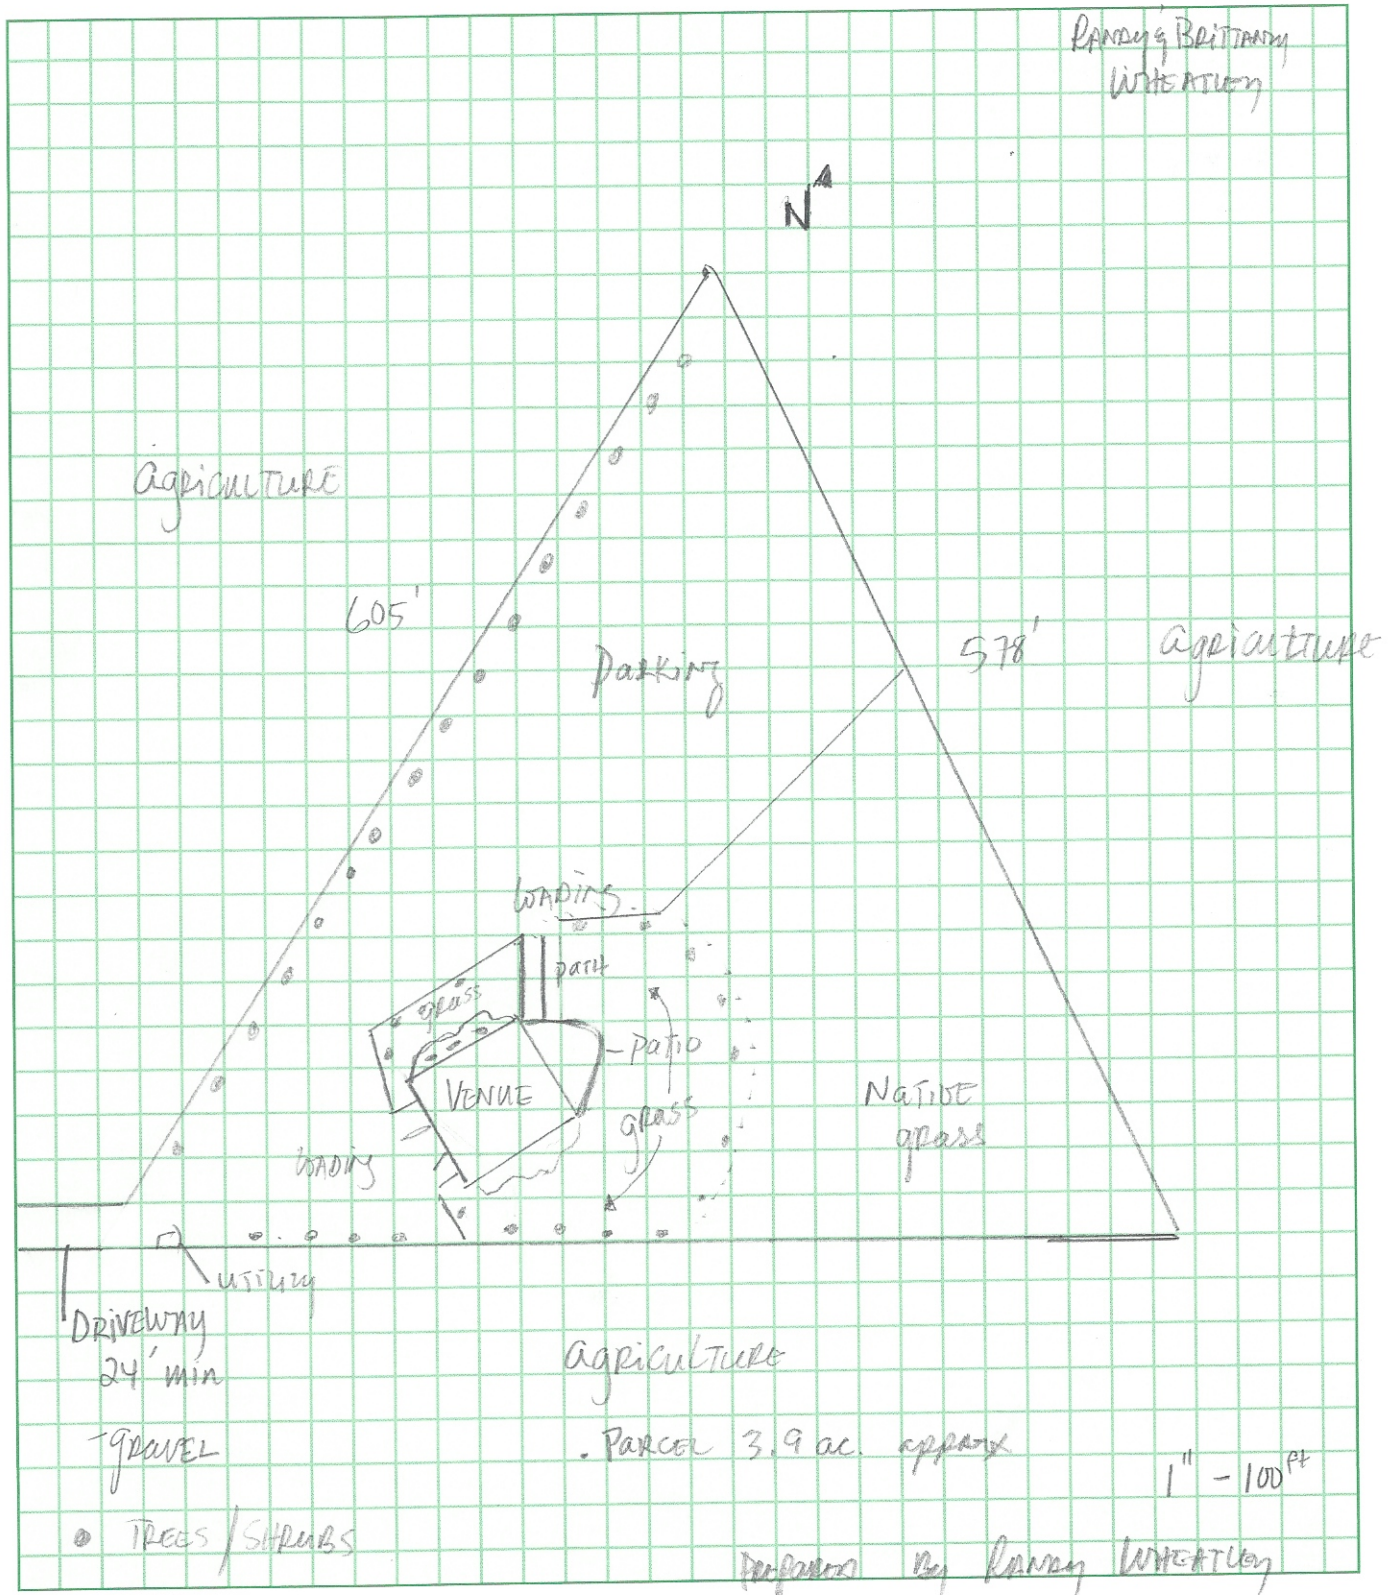 Randy & Brittany
Wheatley
N
Agriculture
605'
Parking
578'
Agriculture
Loading
Path
grass
Patio
Venue
grass
Native
grass
Loading
Utility
Driveway
24' min
- gravel
Agriculture
. Parcel 3.9 ac. approx
1" - 100 ft
Trees / Shrubs
Prepared By Randy Wheatley